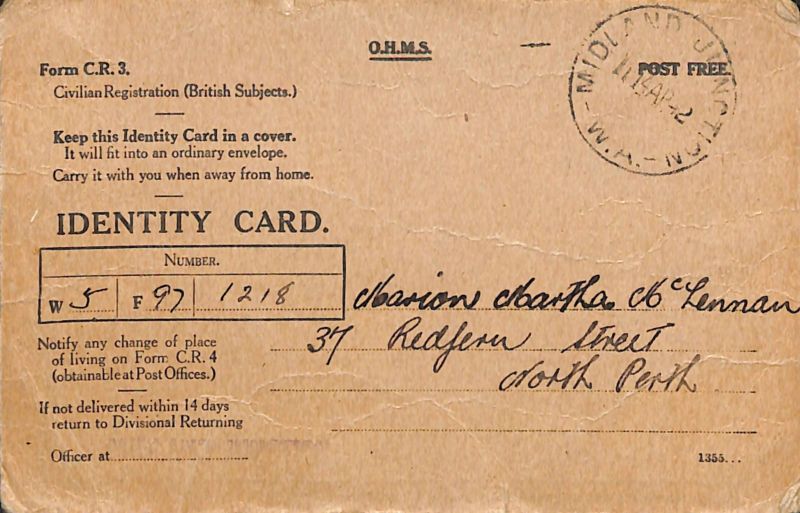 O.H.M.S.
Form C.R. 3.
POST FREE.
Civilian Registration (British Subjects.)
MIDLAND JUNCTION
AP 42
- W.A. -
Keep this Identity Card in a cover.
It will fit into an ordinary envelope.
Carry it with you when away from home.
IDENTITY CARD.
NUMBER.
W 5 F 97 1218
Marion Martha McLennan
37 Redfern Street
North Perth
Notify any change of place
of living on Form C.R. 4
(obtainable at Post Offices.)
If not delivered within 14 days
return to Divisional Returning
Officer at
1355...